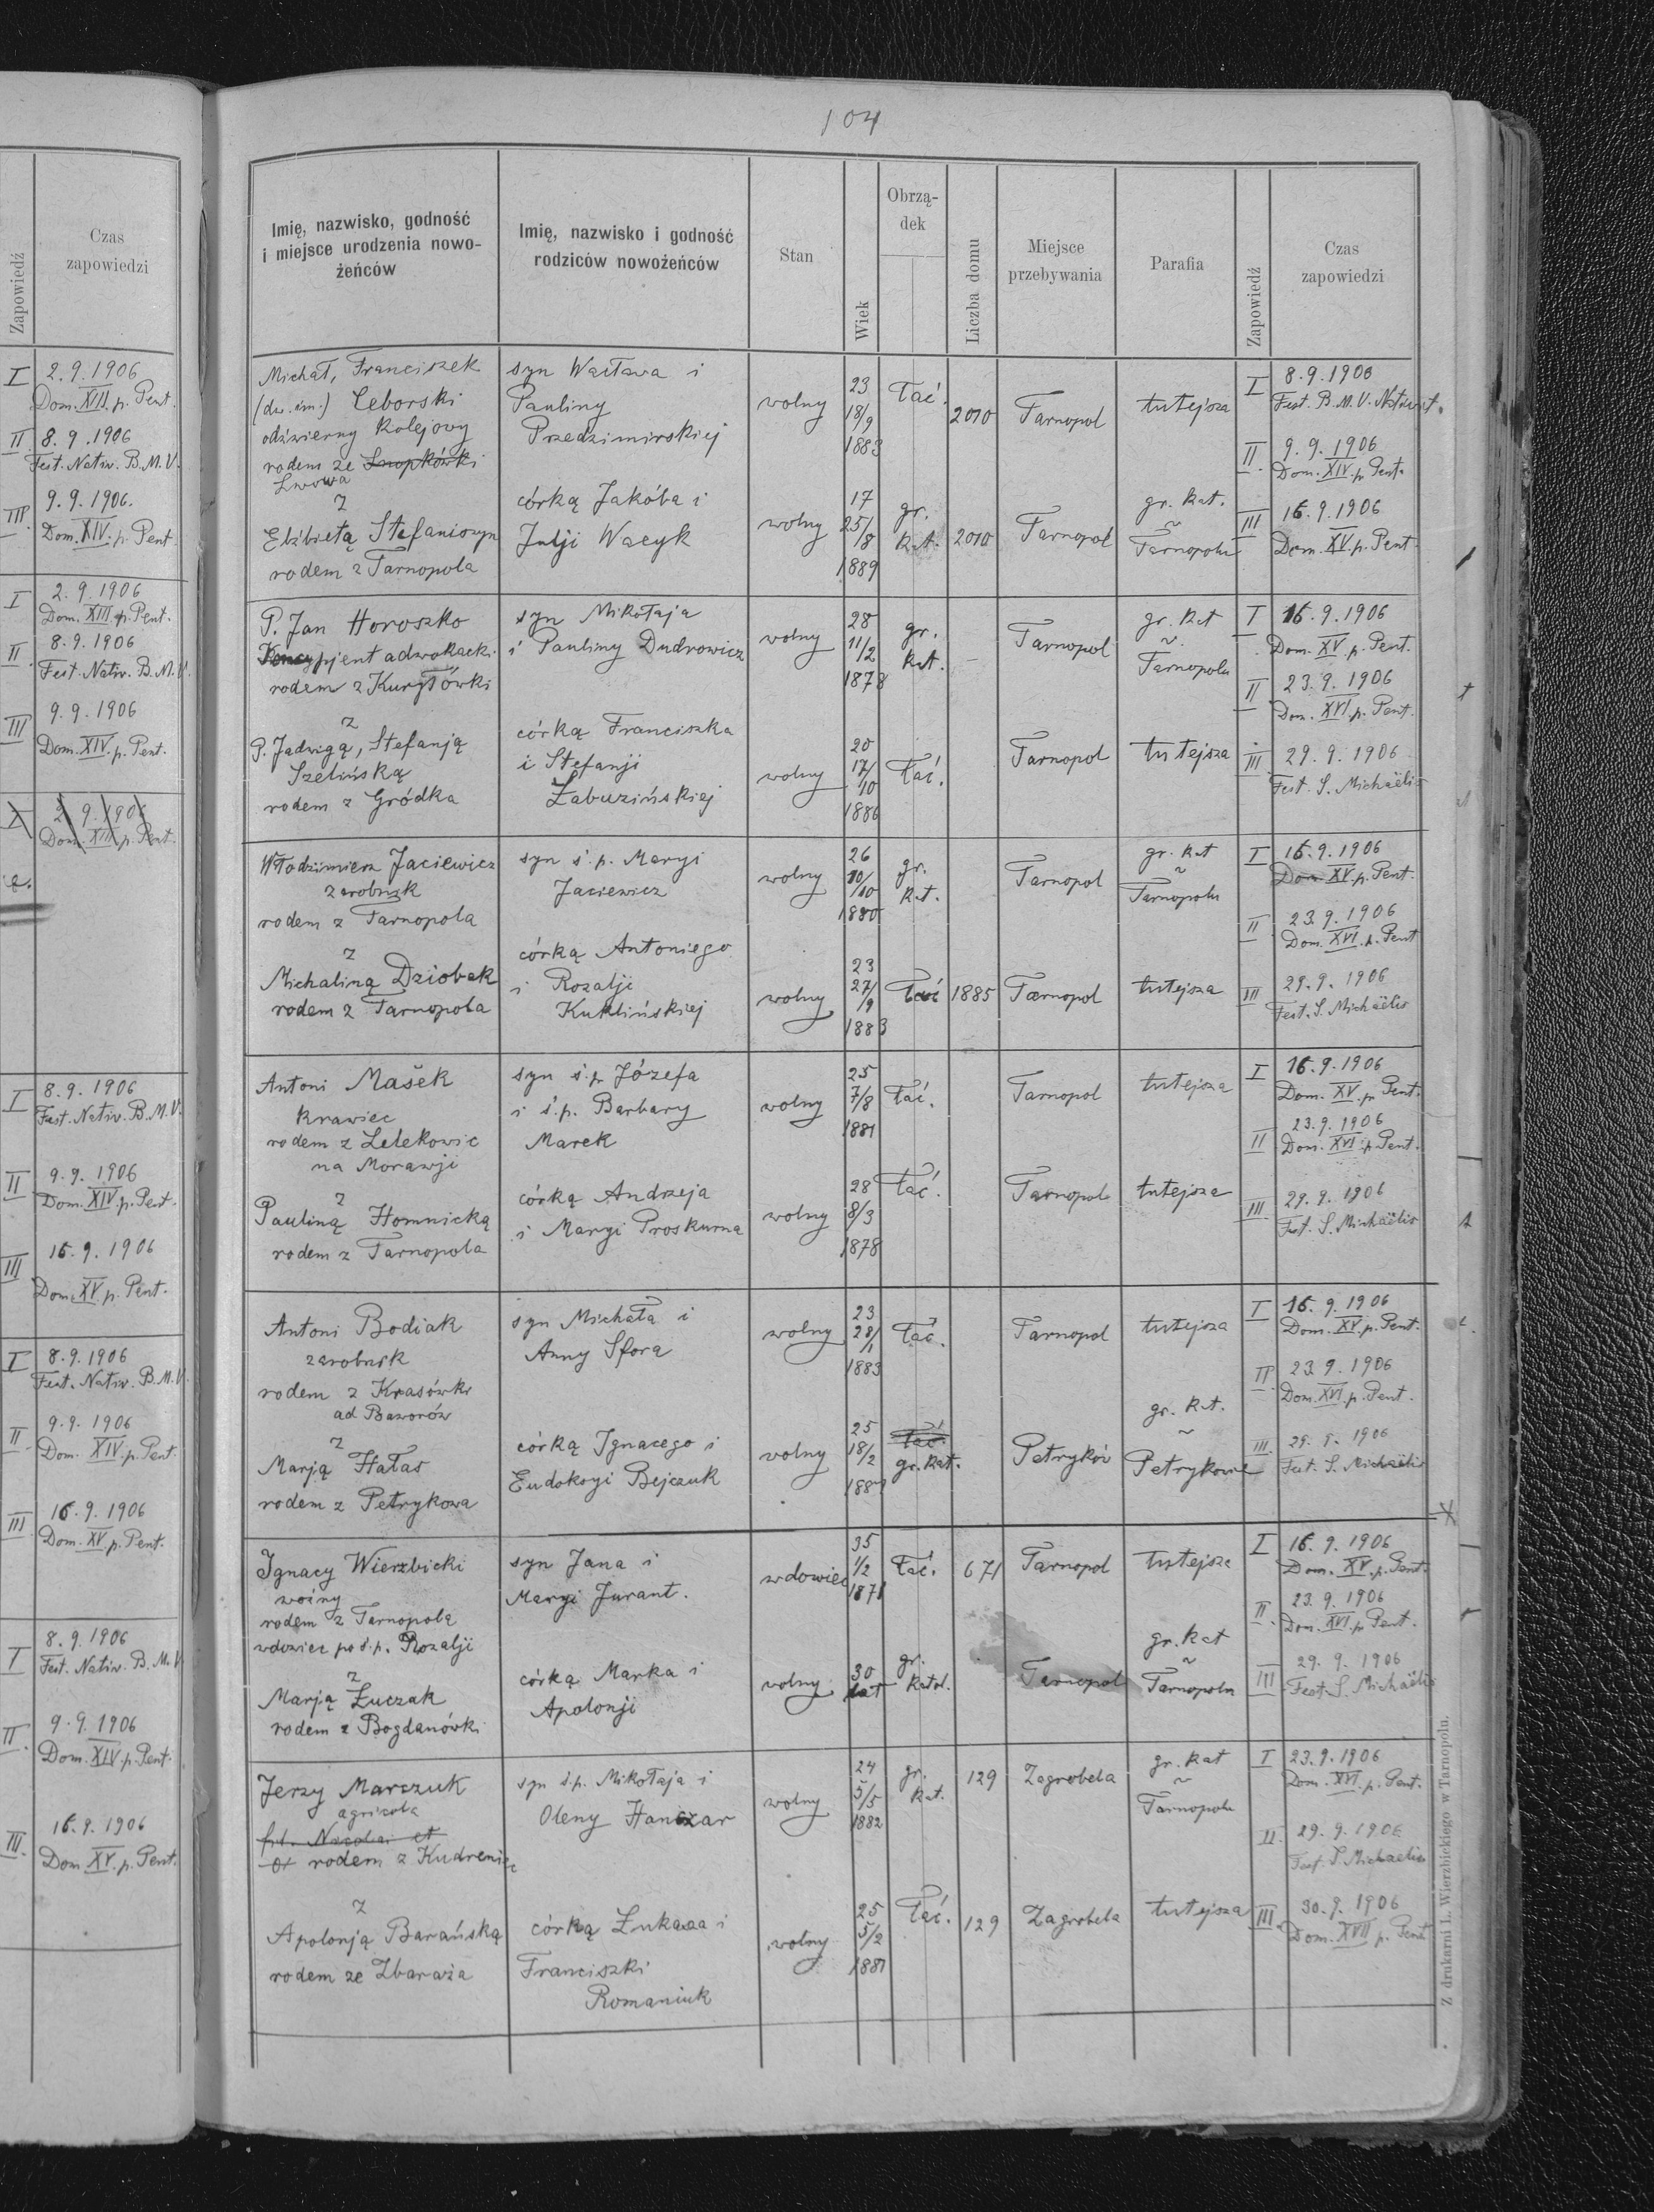 Zapowiedź
Czas
zapowiedzi
I 2.9.1906
Dom. XIII. p. Pent.
II 8.9.1906
Fest. Nativ. B.M.V.
III 9.9.1906.
Dom. XIV. p. Pent.
I 2.9.1906
Dom. XIII. p. Pent.
II 8.9.1906
Fest. Nativ. B.M.V.
III 9.9.1906
Dom. XIV. p. Pent.
I 2.9.1906
Dom. XIII p. Pent.
I 8.9.1906
Fest. Nativ. B.M.V.
II 9.9.1906
Dom. XIV. p. Pent.
III 16.9.1906
Dom. XV. p. Pent.
I 8.9.1906
Fest. Nativ. B.M.V.
II 9.9.1906
Dom. XIV. p. Pent.
III 16.9.1906
Dom. XV. p. Pent.
I 8.9.1906
Fest. Nativ. B.M.V
II 9.9.1906
Dom. XIV. p. Pent.
III. 16.9.1906
Dom. XV. p. Pent.
104
Imię, nazwisko, godność
i miejsce urodzenia nowo-
żeńców
Imię, nazwisko i godność
rodziców nowożeńców
Stan
Wiek
Obrzą-
dek
Liczba domu
Miejsce
przebywania
Parafia
Zapowiedź
Czas
zapowiedzi
Michał, Franciszek
(dw. im.) Ceborski
odźwierny kolejowy
rodem ze Snopkówki
Lwowa
syn Wacława i
Pauliny
Przedzimirskiej
wolny
23
18/9
1883
łać.
2010
Tarnopol
tutejsza
I 8.9.1906
Fest. B.M.V. Nativit.
II. 9.9.1906
Dom. XIV. p. Pent.
z
Elżbietą Stefaniszyn
rodem z Tarnopola
córką Jakóba i
Julji Wacyk
wolny
17
25/8
1889
gr.
kat.
2010
Tarnopol
gr. kat.
~
Tarnopolu
III 16.9.1906
Dom. XV. p. Pent.
P. Jan Horoszko
Koncypjent adwokacki
rodem z Kuryłówki
syn Mikołaja
i Pauliny Dudrowicz
wolny
28
11/2
1878
gr.
kat.
Tarnopol
gr. kat
~
Tarnopolu
I 16.9.1906
Dom. XV. p. Pent.
II 23.9.1906
Dom. XVI. p. Pent.
z
P. Jadwigą, Stefanją
Szelińską
rodem z Gródka
córką Franciszka
i Stefanji
Żabuzińskiej
wolny
20
17/10
1886
łać.
Tarnopol
tutejsza
III 29.9.1906
Fest. S. Michaëlis
Włodzimierz Jaciewicz
zarobnik
rodem z Tarnopola
syn ś.p. Maryi
Jaciewicz
wolny
26
10/10
1880
gr.
kat.
Tarnopol
gr. kat
~
Tarnopolu
I 16.9.1906
Dom. XV. p. Pent.
II 23.9.1906
Dom. XVI. p. Pent
z
Michaliną Dziobek
rodem z Tarnopola
córką Antoniego
i Rozalji
Kuklińskiej
wolny
23
27/9
1883
łać
1885
Tarnopol
tutejsza
III 29.9.1906
Fest. S. Michaëlis
Antoni Mašek
krawiec
rodem z Lelekowic
na Morawji
syn ś.p. Józefa
i ś.p. Barbary
Marek
wolny
25
7/8
1881
łać.
Tarnopol
tutejsza
I 16.9.1906
Dom. XV. p. Pent.
II 23.9.1906
Dom. XVI. p. Pent.
z
Pauliną Homnicką
rodem z Tarnopola
córką Andrzeja
i Maryi Proskurna
wolny
28
8/3
1878
łać.
Tarnopol
tutejsza
III 29.9.1906
Fest. S. Michaëlis
Antoni Bodiak
zarobnik
rodem z Krasówki
ad Baworów
syn Michała i
Anny Sfora
wolny
23
28/1
1883
łać.
Tarnopol
tutejsza
I 16.9.1906
Dom. XV. p. Pent.
II. 23.9.1906
Dom. XVI. p. Pent.
z
Marją Hałas
rodem z Petrykowa
córką Ignacego i
Eudokyi Bejczuk
wolny
25
18/2
łać.
gr. kat.
Petryków
gr. kat.
~
Petrykowie
III. 29.9.1906
Fest. S. Michaëlis
Ignacy Wierzbicki
woźny
rodem z Tarnopola
wdowiec po ś.p. Rozalji
syn Jana i
Maryi Jurant.
wdowiec
35
1/2
1871
łać.
671
Tarnopol
tutejsza
I 16.9.1906
Dom. XV. p. Pent.
II. 23.9.1906
Dom. XVI. p. Pent.
z
Marją Łuczak
rodem z Bogdanówki
córką Marka i
Apolonji
wolny
30
lat
gr.
katol.
Tarnopol
gr. kat
~
Tarnopolu
III 29.9.1906
Fest. S. Michaëlis
Jerzy Marczuk
agricola
fil. Nicolai et
rodem z Kudreniec
syn ś.p. Mikołaja i
Oleny Hanczar
wolny
24
5/5
1882
gr.
kat.
129
Zagrobela
gr. kat
~
Tarnopolu
I 23.9.1906
Dom. XVI. p. Pent.
II. 29.9.1906
Fest. S. Michaelis
z
Apolonją Barańską
rodem ze Zbaraża
córką Łukasza i
Franciszki
Romaniuk
wolny
25
5/2
1881
łać.
129
Zagrobela
tutejsza
III. 30.9.1906
Dom. XVII p. Pent
Z drukarni L. Wierzbickiego w Tarnopolu.